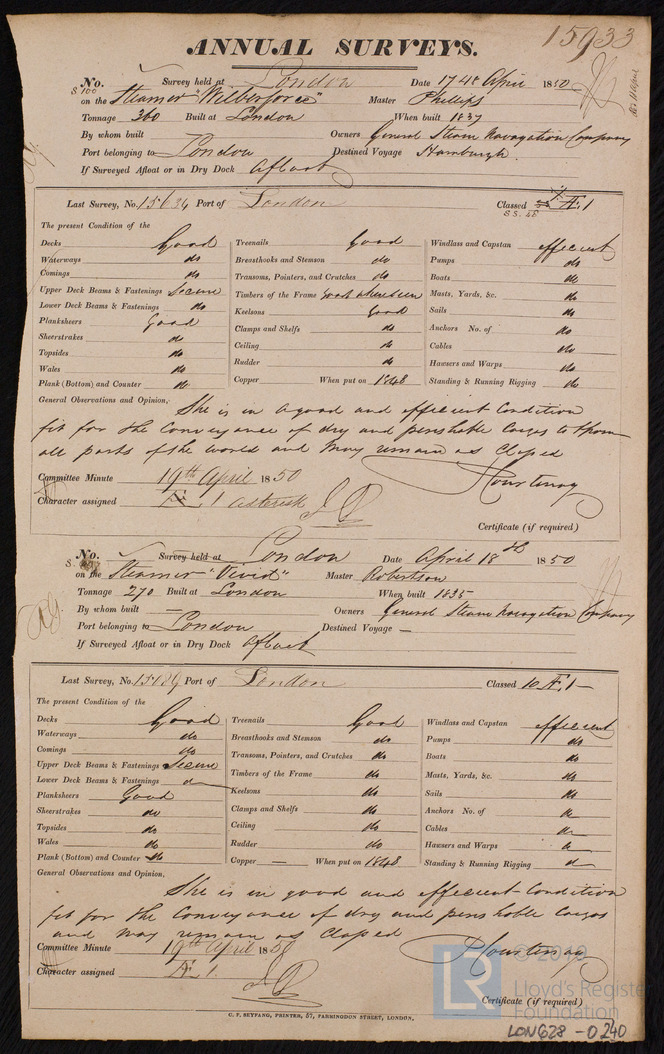 15933
ANNUAL SURVEYS.
No. Survey held at London Date 17 & 4th April 1850
on the Steamer "Wilberforce" Master Phillips
Tonnage 360 Built at London When built 1837
By whom built — Owners General Steam Navagation Company
Port belonging to London Destined Voyage Hamburgh
If Surveyed Afloat or in Dry Dock Afloat
Last Survey, No. 15634 Port of London Classed Æ 1
S S. 48
The present Condition of the
Decks Good
Waterways do
Comings do
Upper Deck Beams & Fastenings Secure
Lower Deck Beams & Fastenings do
Planksheers Good
Sheerstrakes do
Topsides do
Wales do
Plank (Bottom) and Counter do
Treenails Good
Breasthooks and Stemson do
Transoms, Pointers, and Crutches do
Timbers of the Frame Good where seen
Keelsons Good
Clamps and Shelfs do
Ceiling do
Rudder do
Copper When put on 1848
Windlass and Capstan effecient
Pumps do
Boats do
Masts, Yards, &c. do
Sails do
Anchors No. of do
Cables do
Hawsers and Warps do
Standing & Running Rigging do
General Observations and Opinion, She is in a good and effecient Condition
fit for the Conveyance of dry and perishable Cargos to & from
all parts of the world and may remain as Classed
Committee Minute 19th April 1850
Character assigned Æ 1 asterisk
Courtenay
Certificate (if required)
No. Survey held at London Date April 18th 1850
on the Steamer "Vivid" Master Robertson
Tonnage 270 Built at London When built 1835
By whom built — Owners General Steam Navagation Company
Port belonging to London Destined Voyage —
If Surveyed Afloat or in Dry Dock Afloat
Last Survey, No. Port of London Classed 10 Æ 1 —
The present Condition of the
Decks Good
Waterways do
Comings do
Upper Deck Beams & Fastenings Secure
Lower Deck Beams & Fastenings d
Planksheers Good
Sheerstrakes do
Topsides do
Wales do
Plank (Bottom) and Counter do
Treenails Good
Breasthooks and Stemson do
Transoms, Pointers, and Crutches do
Timbers of the Frame do
Keelsons do
Clamps and Shelfs do
Ceiling do
Rudder do
Copper — When put on 1848
Windlass and Capstan effecient
Pumps do
Boats do
Masts, Yards, &c. do
Sails do
Anchors No. of
Cables
Hawsers and Warps
Standing & Running Rigging
General Observations and Opinion,
She is in good and effecient Condition
fit for the Conveyance of dry and perishable Cargos
and may remain as Classed
Committee Minute 19th April 1850
Character assigned Æ 1
Courtenay
Certificate (if required)
C. F. SEYFANG, PRINTER, 57, FARRINGDON STREET, LONDON.
LR © 2019
Lloyd's Register
Foundation
LON628-0240